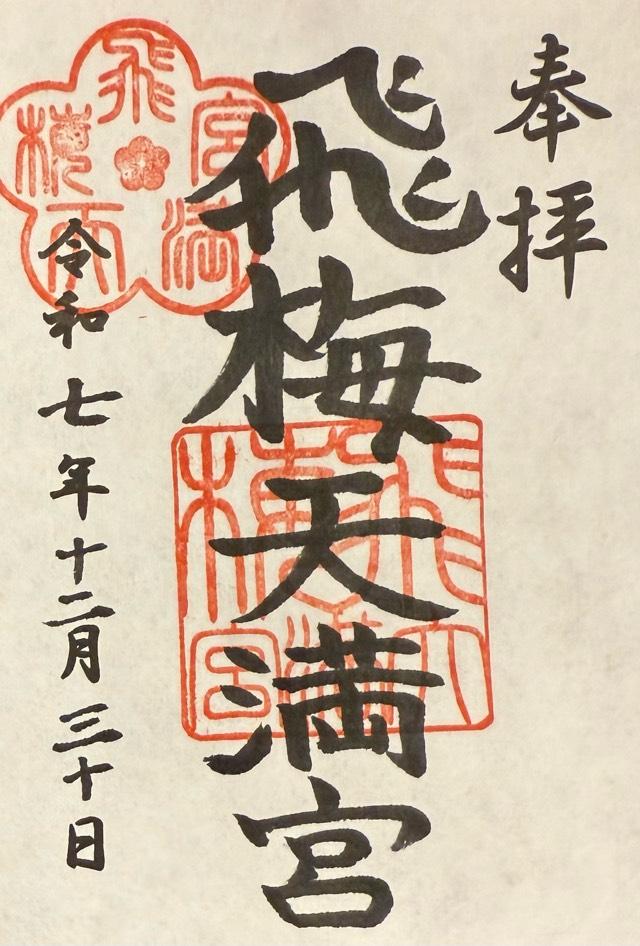 奉拝
飛梅天満宮
令和七年十二月三十日
飛梅天満宮
飛梅天満宮